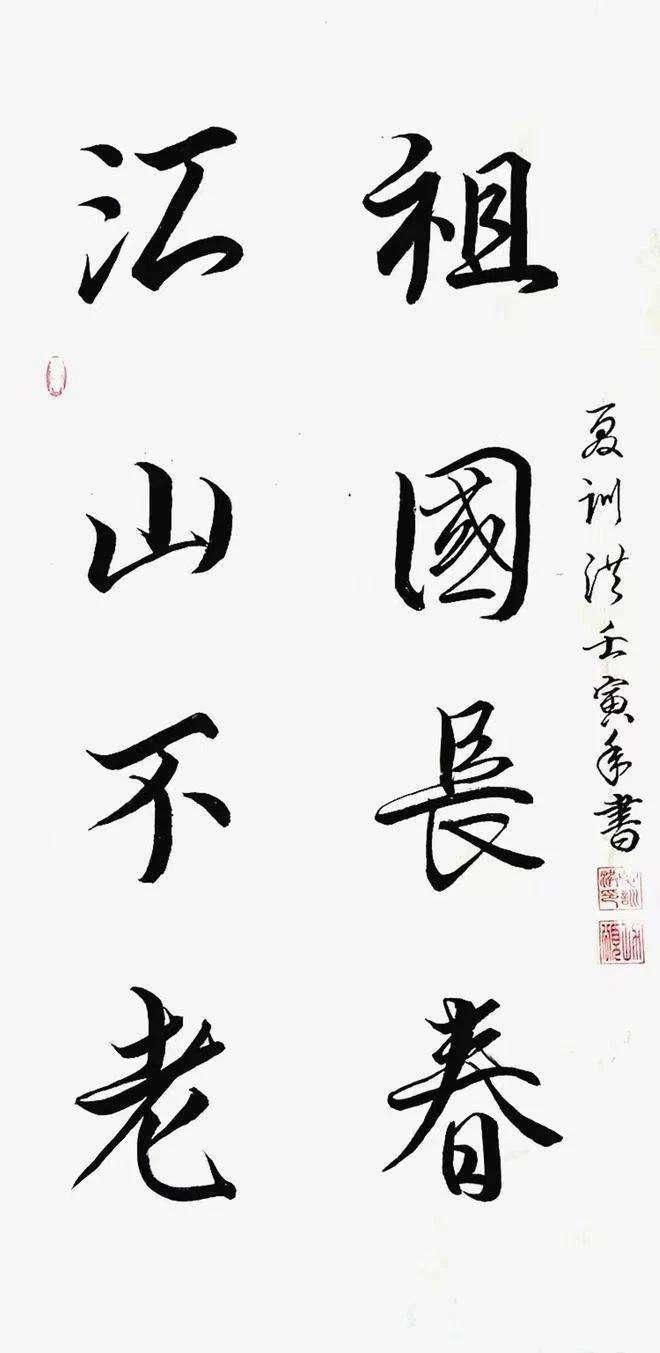 江山不老
祖國長春
夏训洪壬寅年書